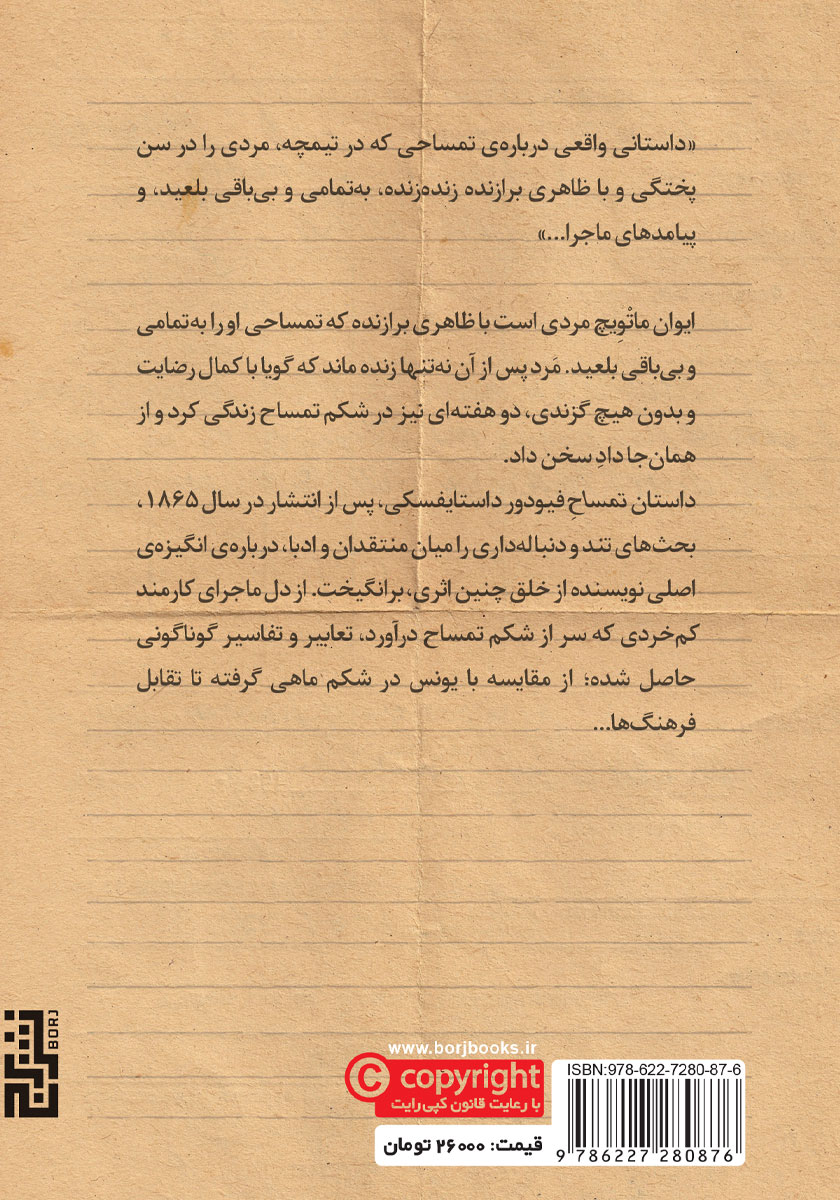 «داستانی واقعی درباره‌ی تمساحی که در تیمچه، مردی را در سن
پختگی و با ظاهری برازنده زنده‌زنده، به‌تمامی و بی‌باقی بلعید، و
پیامدهای ماجرا...»
ایوان ماتْوِیچ مردی است با ظاهری برازنده که تمساحی او را به‌تمامی
و بی‌باقی بلعید. مَرد پس از آن نه‌تنها زنده ماند که گویا با کمال رضایت
و بدون هیچ گزندی، دو هفته‌ای نیز در شکم تمساح زندگی کرد و از
همان‌جا دادِ سخن داد.
داستان تمساحِ فیودور داستایفسکی، پس از انتشار در سال ۱۸۶۵،
بحث‌های تند و دنباله‌داری را میان منتقدان و ادبا، درباره‌ی انگیزه‌ی
اصلی نویسنده از خلق چنین اثری، برانگیخت. از دل ماجرای کارمند
کم‌خردی که سر از شکم تمساح درآورد، تعابیر و تفاسیر گوناگونی
حاصل شده؛ از مقایسه با یونس در شکم ماهی گرفته تا تقابل
فرهنگ‌ها...
برج
BORJ
www.borjbooks.ir
© copyright
با رعایت قانون کپی‌رایت
قیمت: ۲۶۰۰۰ تومان
ISBN:978-622-7280-87-6
9 786227 280876